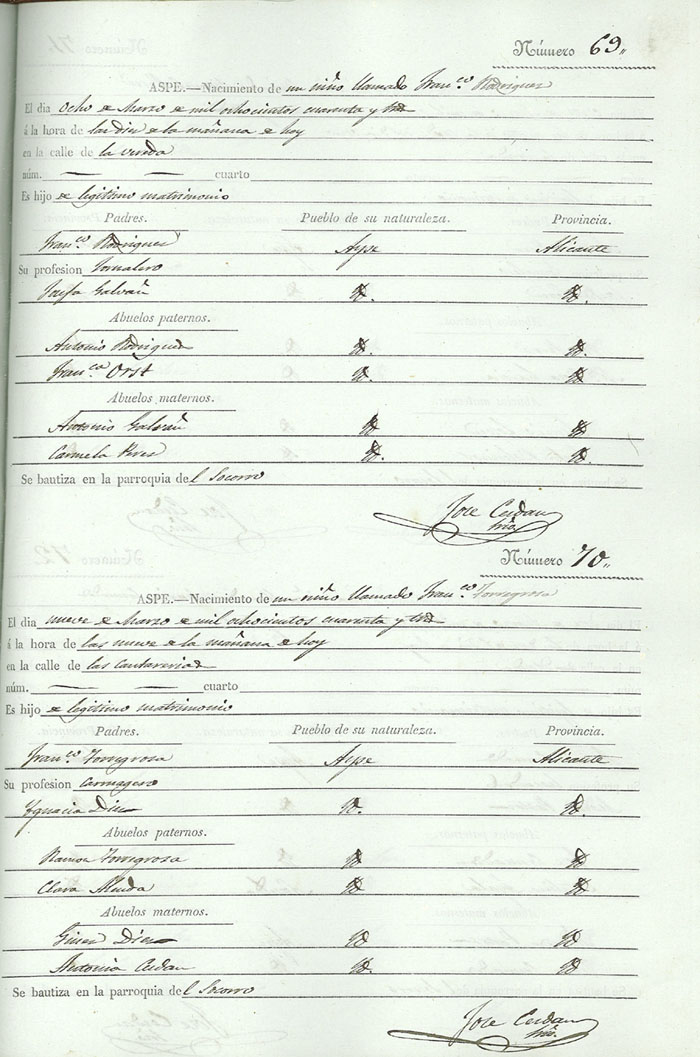 Número 69,,
ASPE.—Nacimiento de un niño llamado Fran.co Rodriguez
El dia ocho de Marzo de mil ochocientos cuarenta y tres
á la hora de las diez de la mañana de hoy
en la calle de la vereda
núm. — — cuarto
Es hijo de legitimo matrimonio
Padres. Pueblo de su naturaleza. Provincia.
Fran.co Rodriguez Aspe Alicante
Su profesion Jornalero
Josefa Galvañ Yd. Yd.
Abuelos paternos.
Antonio Rodriguez Yd. Yd.
Fran.ca Orst Yd. Yd.
Abuelos maternos.
Antonio Galvañ Yd Yd
Carmela Peres Yd. Yd.
Se bautiza en la parroquia del Socorro
Jose Cerdan
Número 70,,
ASPE.—Nacimiento de un niño llamado Fran.co Torregrosa
El dia nueve de Marzo de mil ochocientos cuarenta y tres
á la hora de las nueve de la mañana de hoy
en la calle de las Cantarerias
núm. — — cuarto
Es hijo de legitimo matrimonio
Padres. Pueblo de su naturaleza. Provincia.
Fran.co Torregrosa Aspe Alicante
Su profesion Carruagero
Ygnacia Diez Yd. Yd.
Abuelos paternos.
Ramon Torregrosa Yd Yd
Clara Yd Yd
Abuelos maternos.
Gines Diez Yd Yd
Antonia Cerdan Yd. Yd
Se bautiza en la parroquia del Socorro
Jose Cerdan